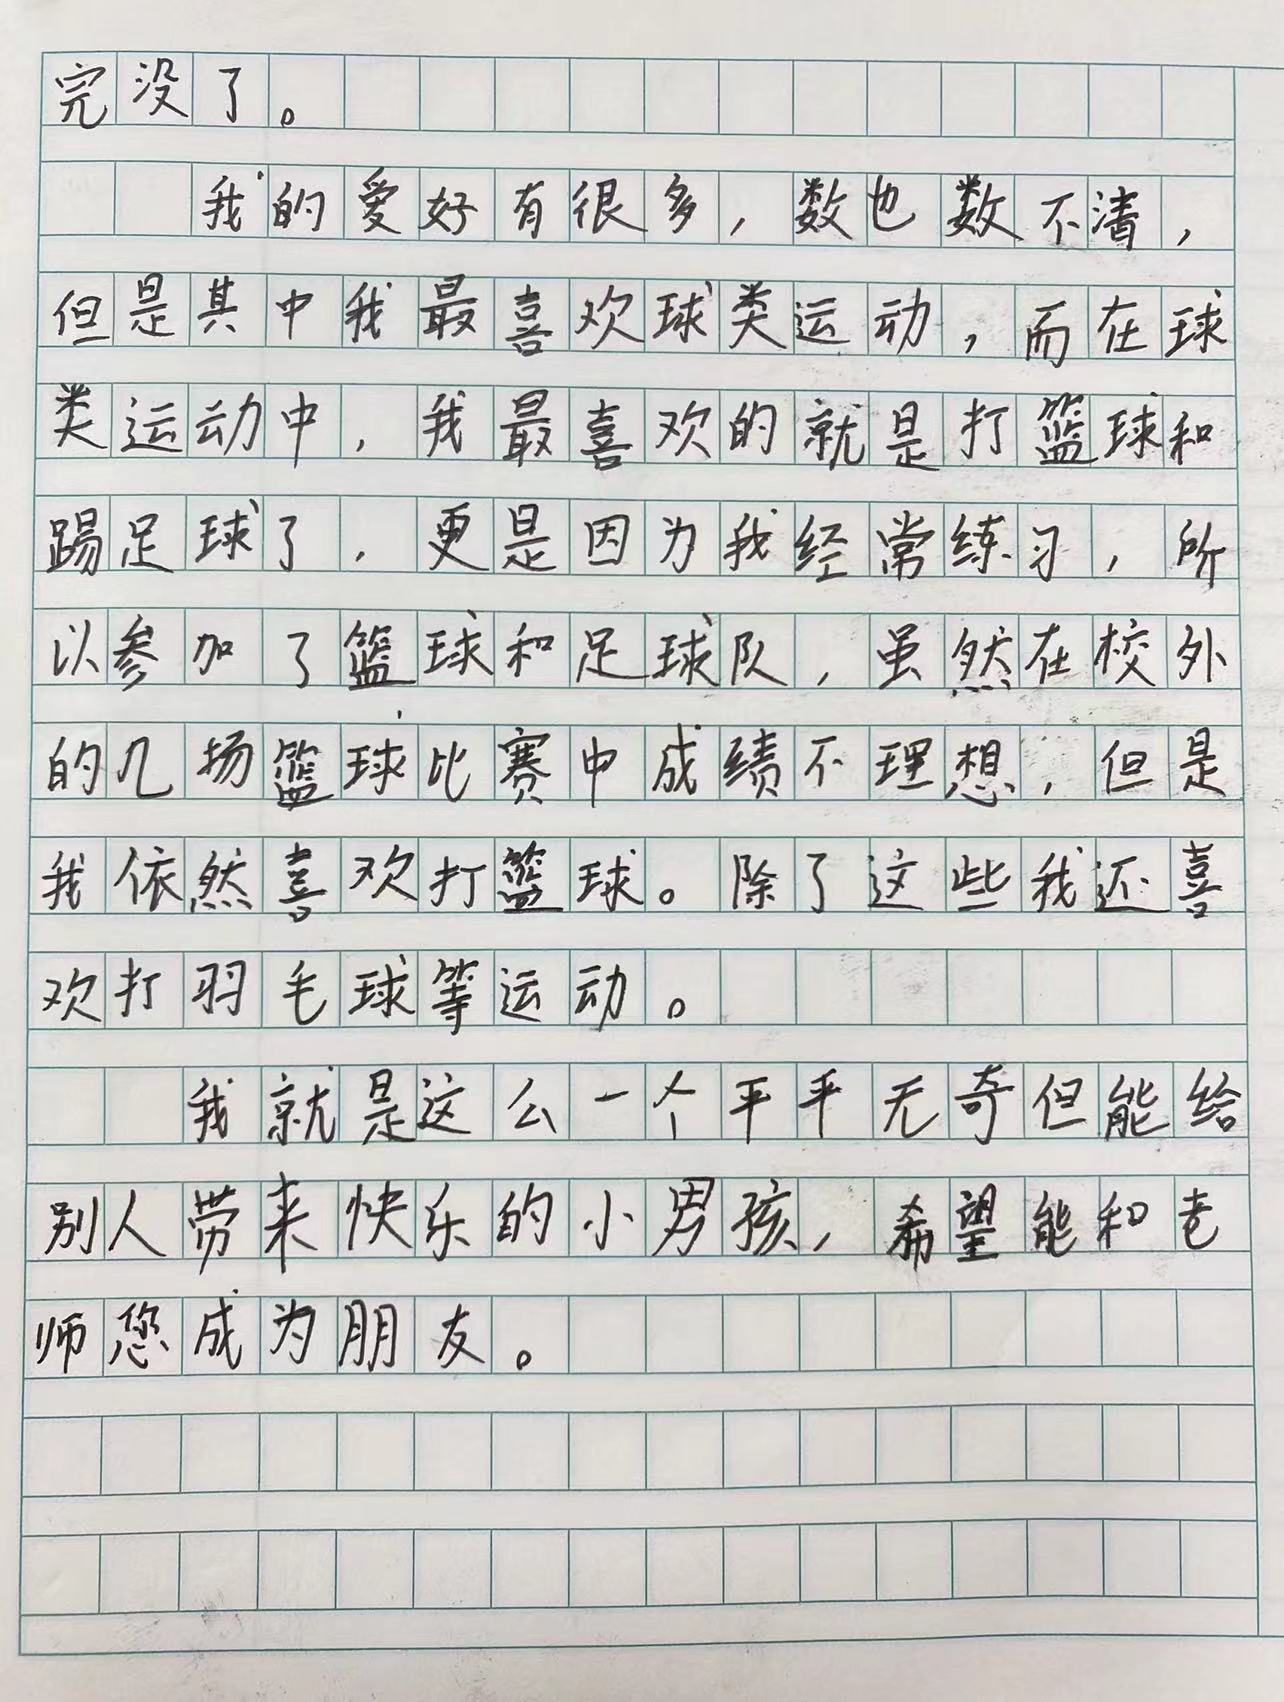 完没了。
我的爱好有很多，数也数不清，
但是其中我最喜欢球类运动，而在球
类运动中，我最喜欢的就是打篮球和
踢足球了，更是因为我经常练习，所
以参加了篮球和足球队，虽然在校外
的几场篮球比赛中成绩不理想，但是
我依然喜欢打篮球。除了这些我还喜
欢打羽毛球等运动。
我就是这么一个平平无奇但能给
别人带来快乐的小男孩，希望能和老
师您成为朋友。